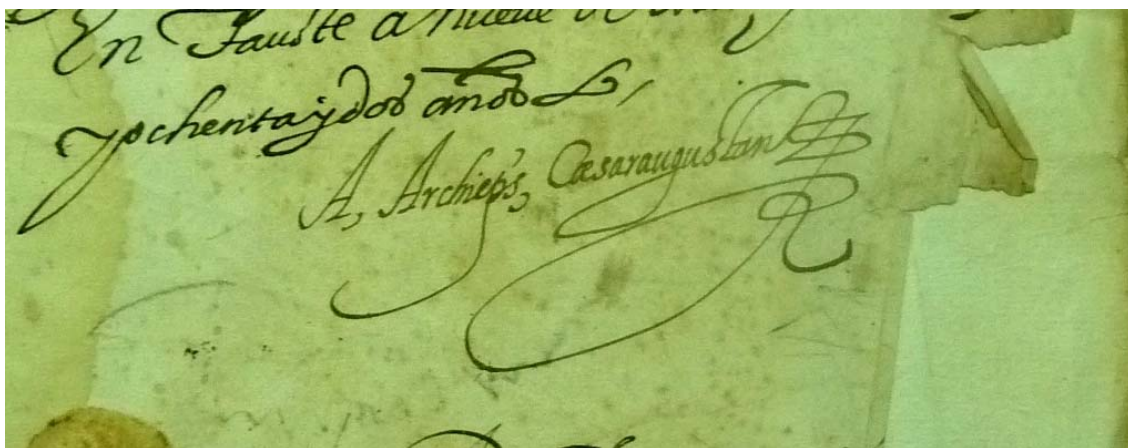 En Tauste a nueue de
y ochenta y dos años
A, Archieps, Cæsaraugustan